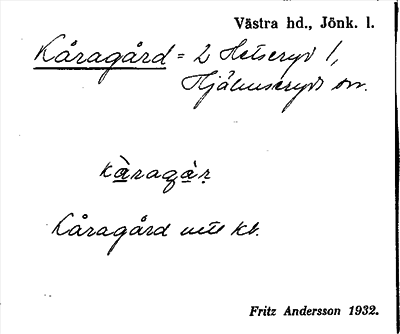 Västra hd., Jönk. l.
Kåragård = 2 Hetseryd 1,
Hjälmseryds sn.
kàragàṛ
Kåragård enl kb.
Fritz Andersson 1932.